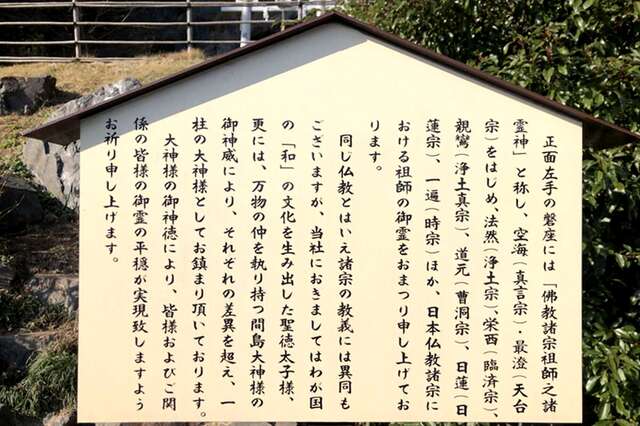 正面左手の磐座には「佛教諸宗祖師之諸
霊神」と称し、空海(真言宗)・最澄(天台
宗)をはじめ、法然(浄土宗)、栄西(臨済宗)、
親鸞(浄土真宗)、道元(曹洞宗)、日蓮(日
蓮宗)、一遍(時宗)ほか、日本仏教諸宗に
おける祖師の御霊をおまつり申し上げてお
ります。
同じ仏教とはいえ諸宗の教義には異同も
ございますが、当社におきましてはわが国
の「和」の文化を生み出した聖徳太子様、
更には、万物の仲を執り持つ間島大神様の
御神威により、それぞれの差異を超え、一
柱の大神様としてお鎮まり頂いております。
大神様の御神徳により、皆様およびご関
係の皆様の御霊の平穏が実現致しますよう
お祈り申し上げます。